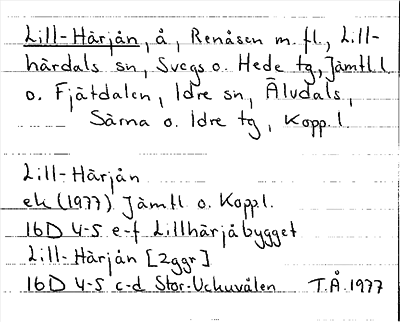 Lill-Härjån, å, Renåsen m. fl, Lill-
härdals sn, Svegs o. Hede tg, Jämtl l
o. Fjätdalen, Idre sn, Älvdals,
Särna o. Idre tg, Kopp. l.
Lill-Härjån
ek (1977) Jämtl o. Koppl.
16D 4-5 e-f Lillhärjåbygget
Lill-Härjån [2ggr]
16D 4-5 c-d Stor-Uckuvålen T.Å. 1977